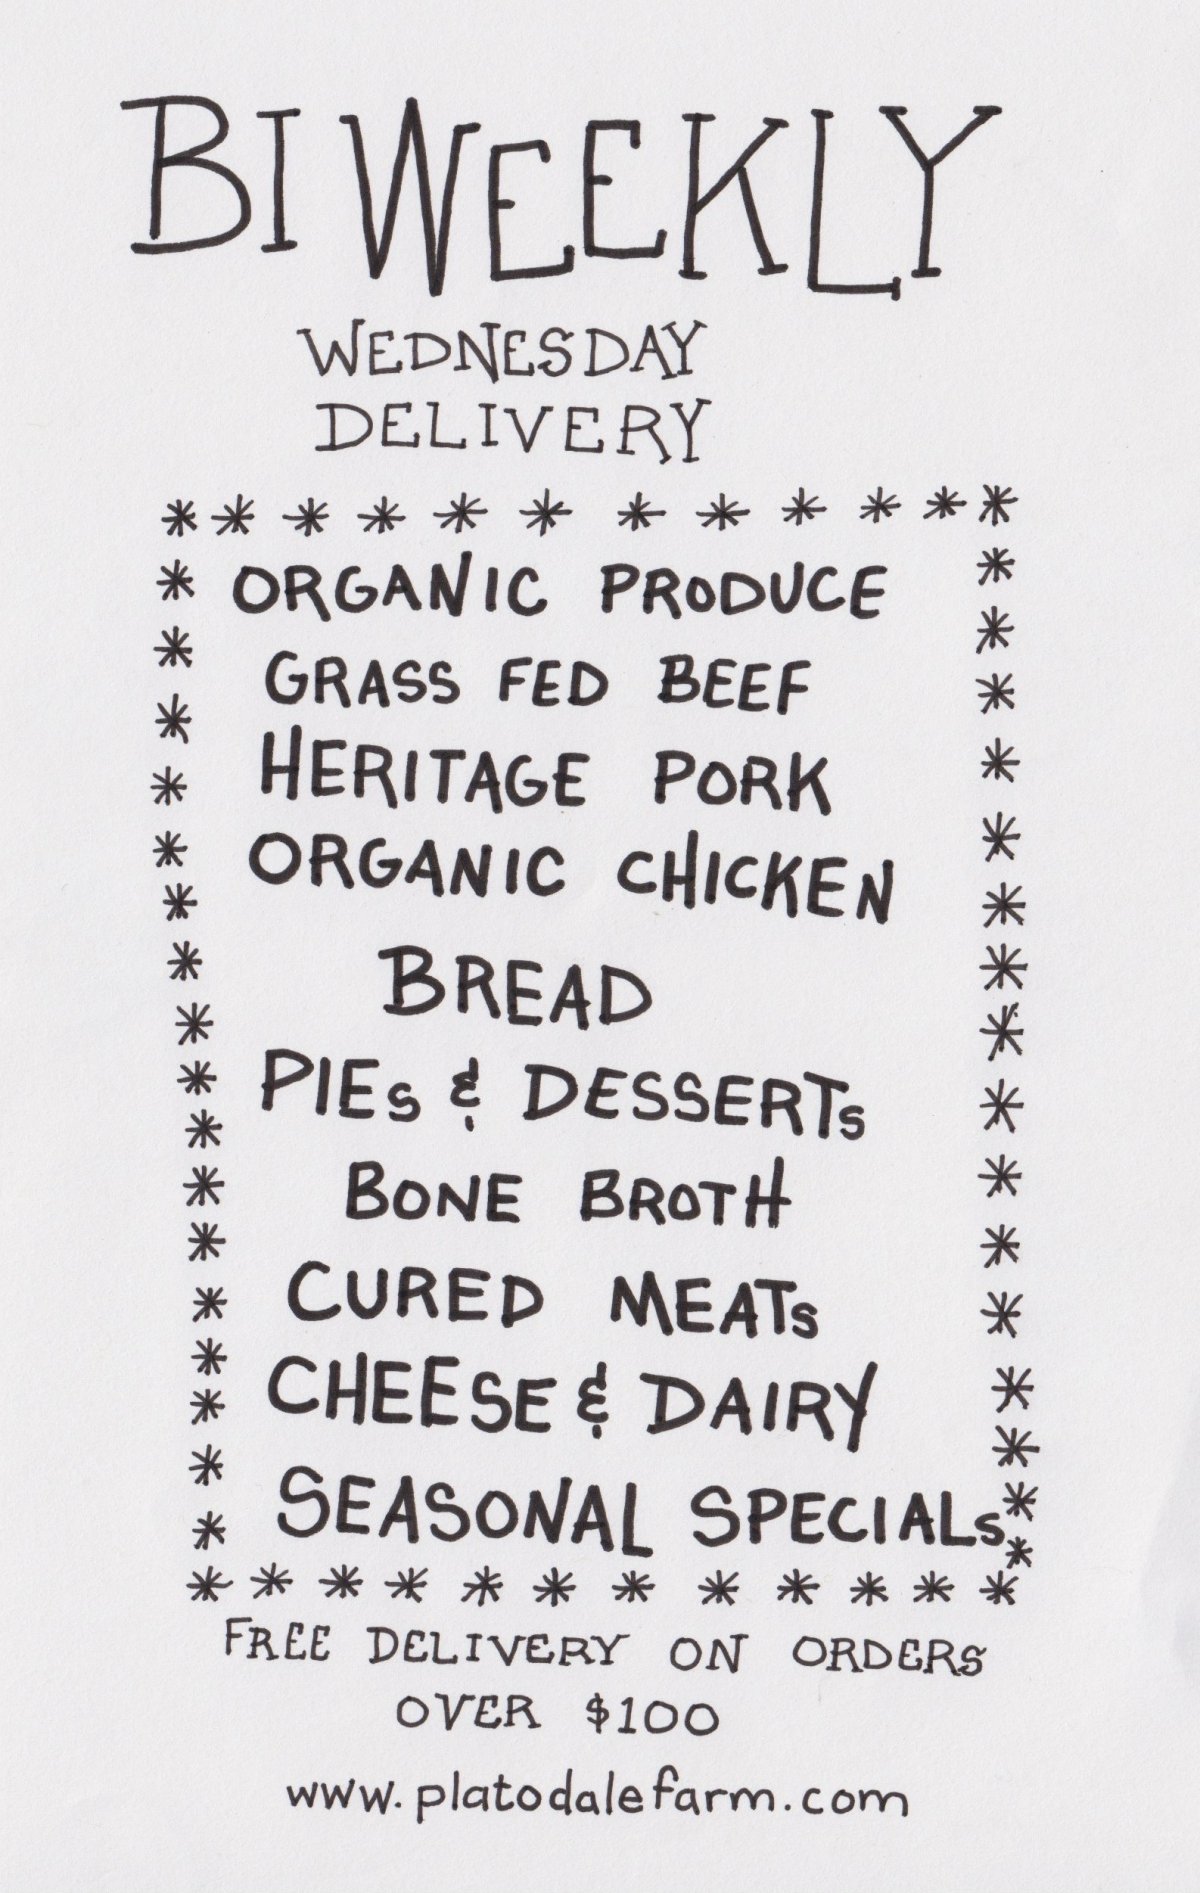 BIWEEKLY
WEDNESDAY
DELIVERY
ORGANIC PRODUCE
GRASS FED BEEF
HERITAGE PORK
ORGANIC CHICKEN
BREAD
PIEs & DESSERTs
BONE BROTH
CURED MEATs
CHEESE & DAIRY
SEASONAL SPECIALs
FREE DELIVERY ON ORDERS
OVER $100
www.platodalefarm.com